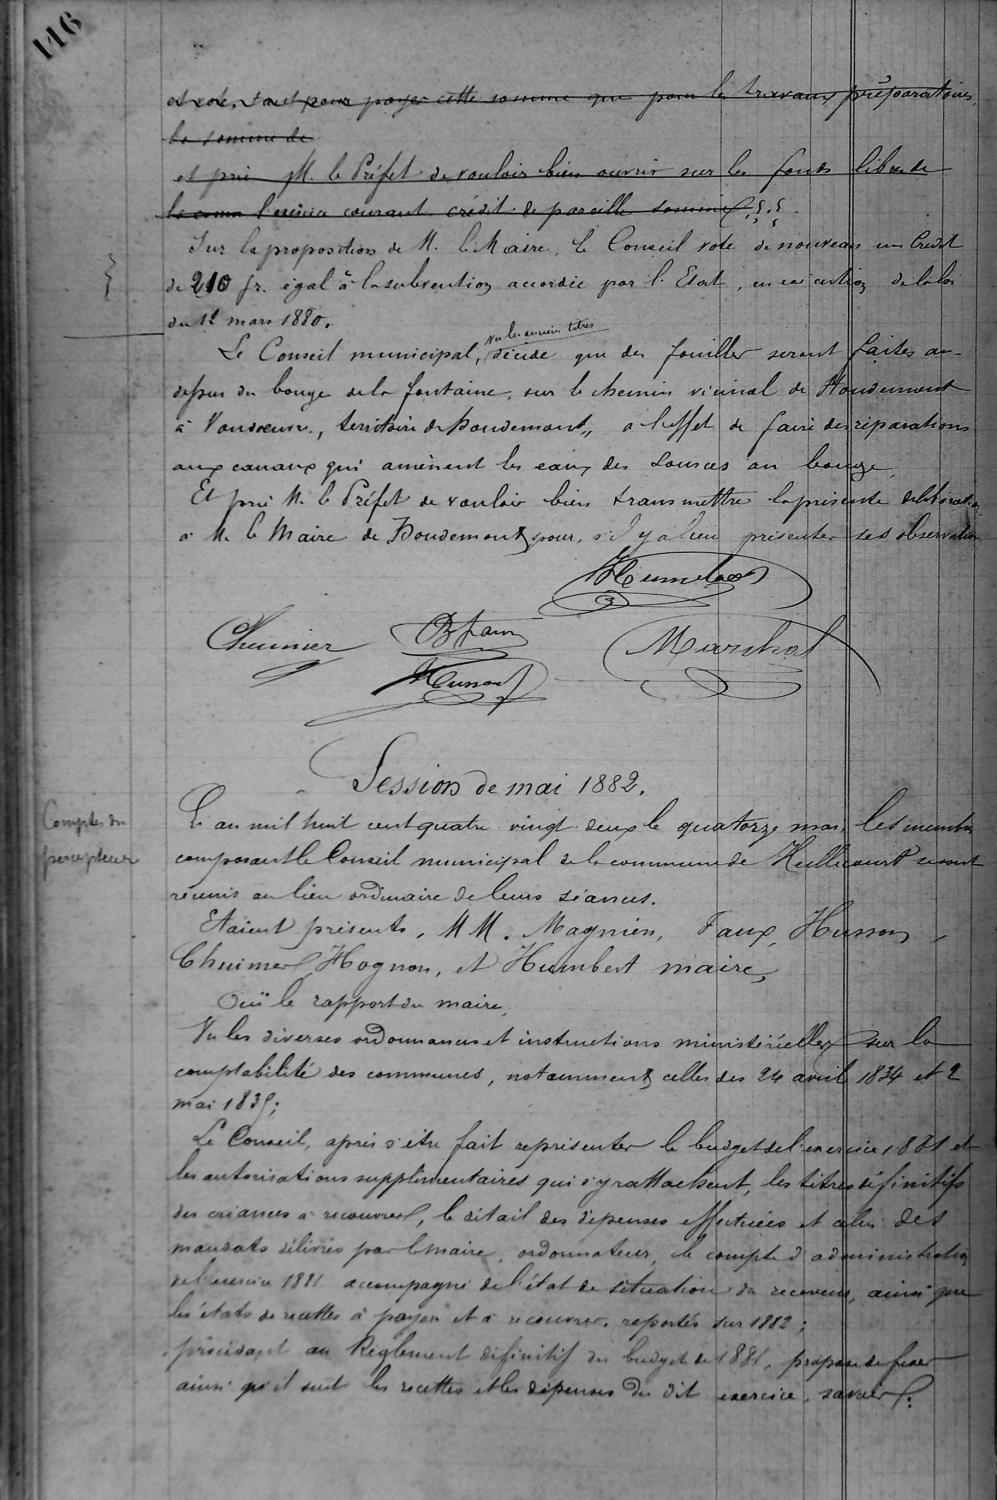 116
et vote, tant pour payer cette somme que pour les travaux préparatoires,
la somme de
et prie M. le Préfet de vouloir bien ouvrir sur les fonds libres de
l'exercice courant crédit de pareille somme
Sur la proposition de M. le Maire, le Conseil vote de nouveau un Crédit
de 210 fr. égal à la subvention accordée par l'Etat, en exécution de la loi
du 12 mars 1880.
vu les anciens titres
Le Conseil municipal, décide que des fouilles seront faites au-
dessus du bouge de la fontaine, sur le chemin vicinal de Houdemont
à Vandoeuvre, territoire de houdemont, à l'effet de faire des réparations
aux canaux qui amènent les eaux des sources au bouge
Et prie M. le Préfet de vouloir bien transmettre la présente délibération
à M. le Maire de Houdemont pour, s'il y a lieu présenter ses observations
Humbert
Chuimer Faux Marchal
Husson
Session de mai 1882.
Comptes du
percepteur
L'an mil huit cent quatre vingt deux le quatorze mai, les membres
composant le Conseil municipal de la commune de Heillecourt se sont
réunis au lieu ordinaire de leurs séances.
Etaient présents, MM. Magnien, Faux, Husson,
Chuimer, Hognon, et Humbert maire,
Ouï le rapport du maire,
Vu les diverses ordonnances et instructions ministérielles sur la
comptabilité des communes, notamment celles des 24 avril 1834 et 2
mai 1835;
Le Conseil, après s'être fait représenter le budget de l'exercice 1881 et
les autorisations supplémentaires qui s'y rattachent, les titres définitifs
des créances à recouvrer, le détail des dépenses effectuées et celui des
mandats délivrés par le maire, ordonnateur, le compte d'administration
de l'exercice 1881 accompagné de l'état de situation du receveur, ainsi que
les états de recettes à payer et à recouvrer, reportés sur 1882;
procédant au Règlement définitif du budget de 1881, propose de fixer
ainsi qu'il suit les recettes et les dépenses du dit exercice, savoir: